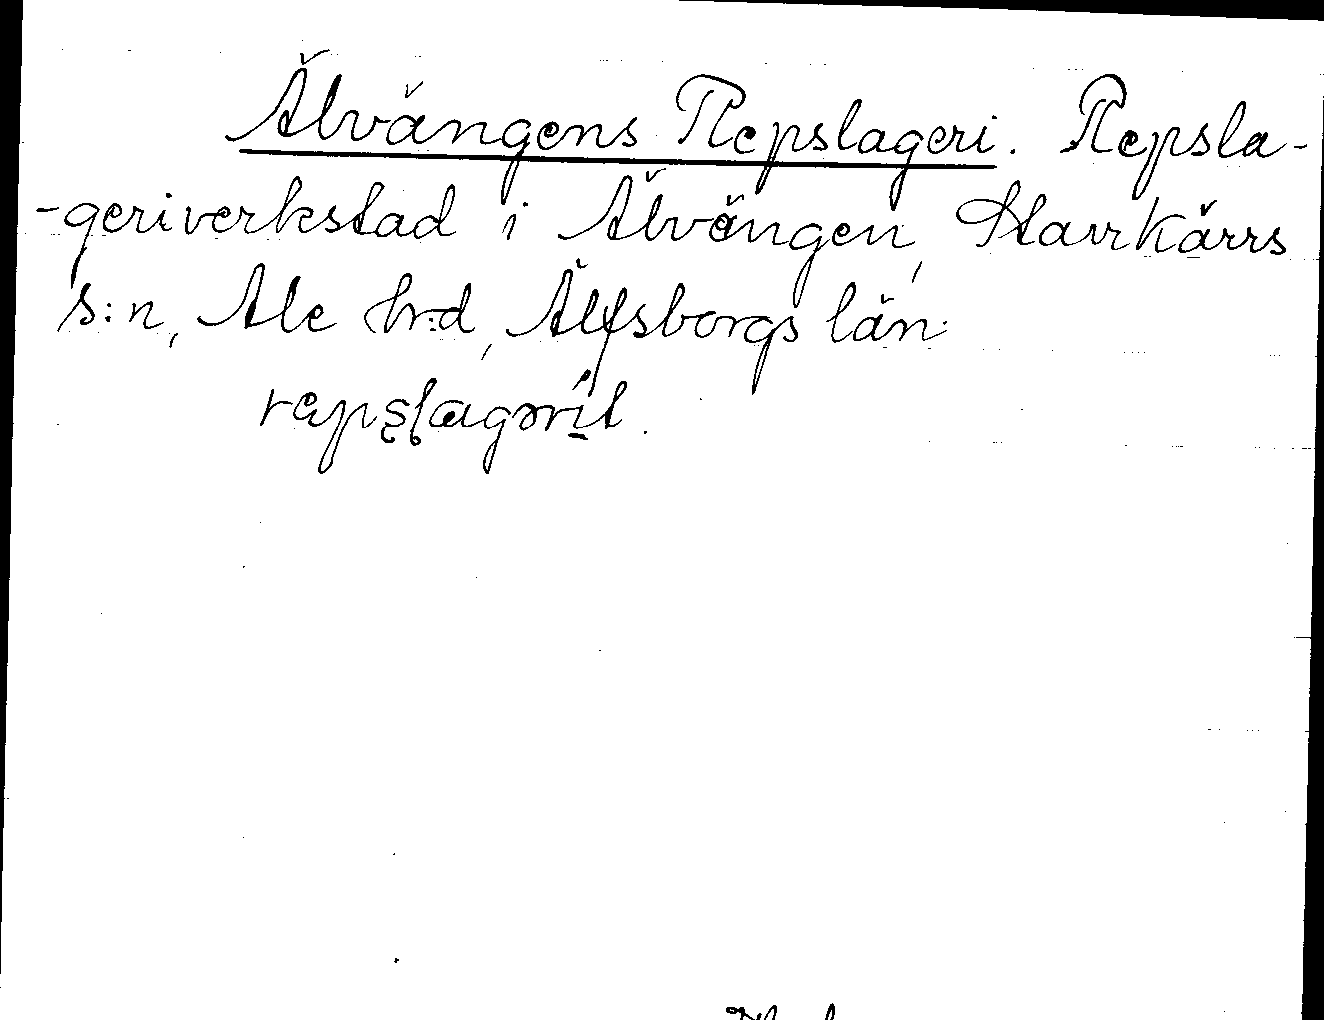 Älvängens Repslageri. Repsla-
-geriverkstad i Älvängen, Starrkärrs
s:n, Ale h:d, Älfsborgs län.